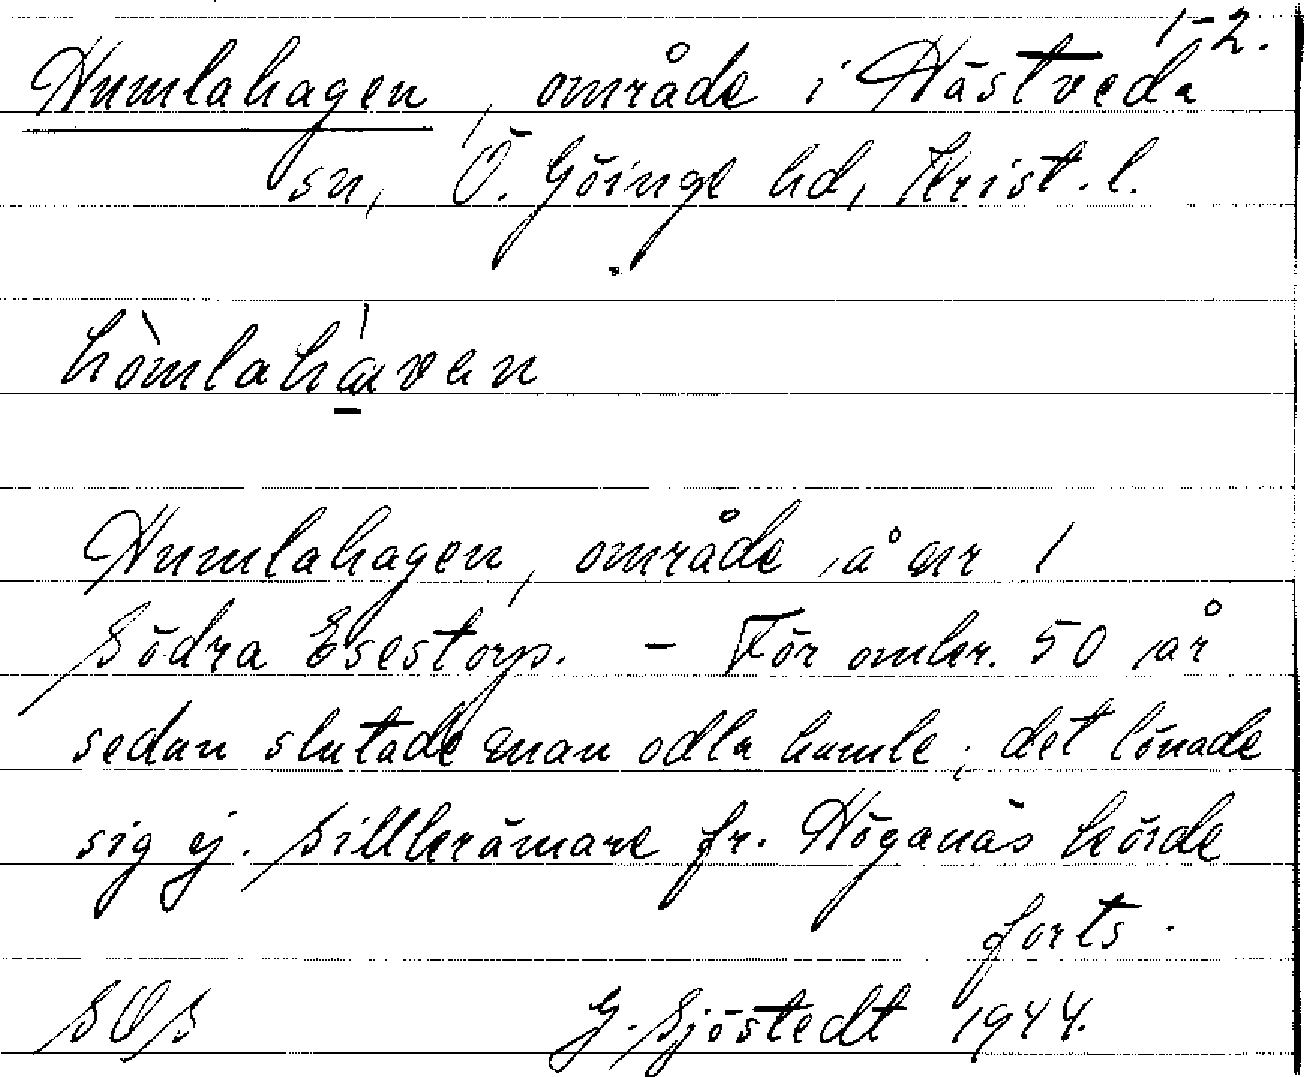 1-2.
Humlahagen, område i Hästveda
sn, Ö. Göinge hd, Krist. l.
hòmlahávan
Humlahagen, område å nr 1
Södra Esestorp. - För omkr. 50 år
sedan slutade man odla humle; det lönade
sig ej. Sillkrämare fr. Höganäs körde
forts.
SOS G. Sjöstedt 1944.